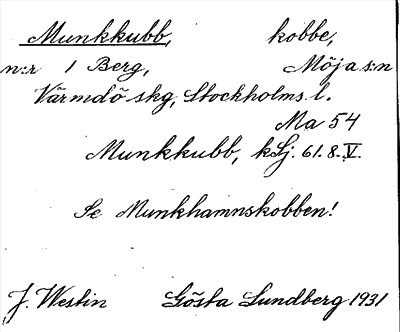 Munkkubb, kobbe,
n:r 1 Berg, Möja s:n
Värmdö skg, Stockholms l.
Ma 54
Munkkubb, kSj. 61.8.V.
Se Munkhamnskobben!
J. Westin Gösta Lundberg 1931